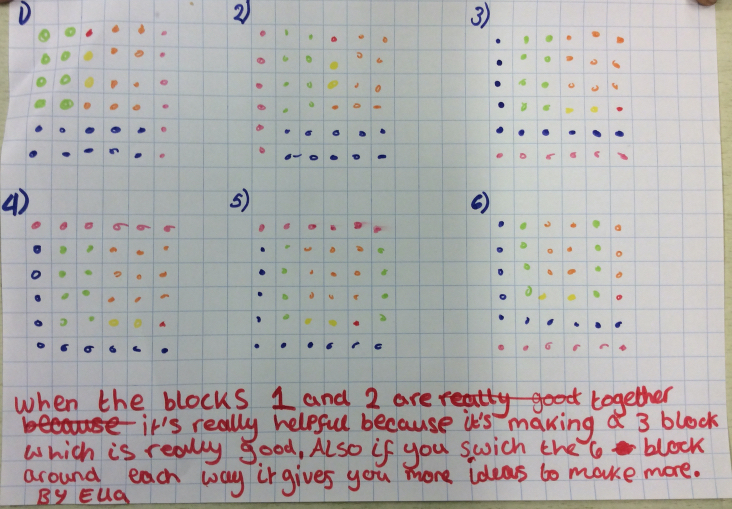 1) 2) 3)
4) 5) 6)
when the blocks 1 and 2 are really good together
because it's really helpful because it's making a 3 block
which is really good. Also if you swich the 6 block
around each way it gives you more ideas to make more.
BY Ella